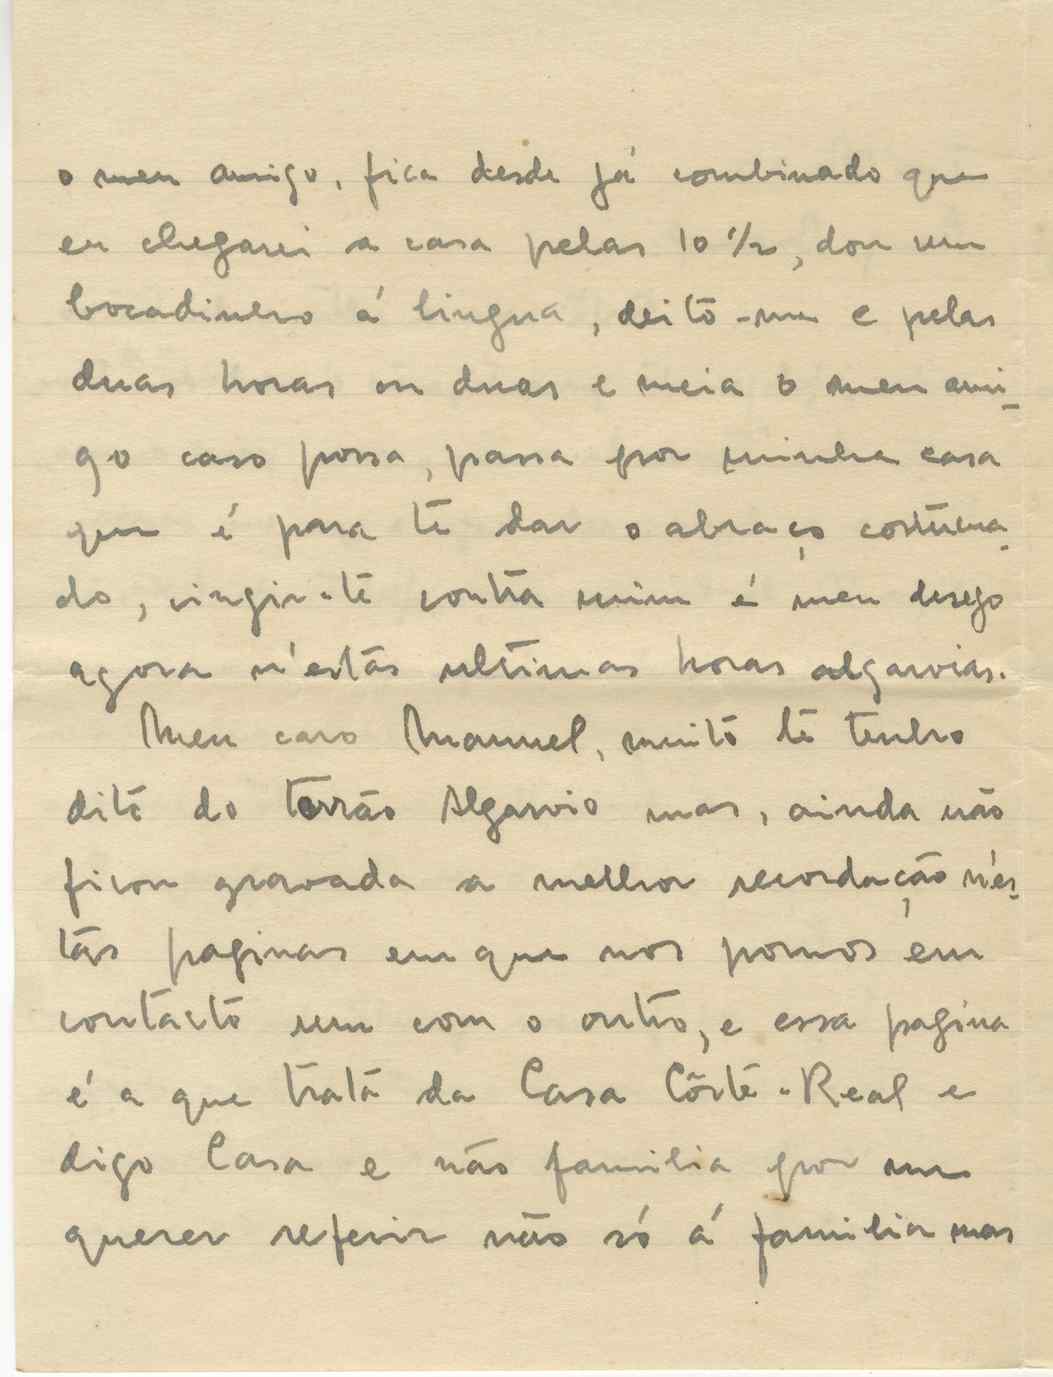 o meu amigo, fica desde já combinado que
eu chegarei a casa pelas 10 1/2, dou um
bocadinho á lingua, deito-me e pelas
duas horas ou duas e meia o meu ami-
go caso possa, passa por minha casa
que é para te dar o abraço costuma-
do, cingir-te contra mim é meu desejo
agora n'estas ultimas horas algarvias.
Meu caro Manuel, muito te tenho
dito do torrão Algarvio mas, ainda não
ficou gravada a melhor recordação n'es-
tas paginas em que nos pomos em
contacto um com o outro, e essa pagina
é a que trata da Casa Côrte-Real e
digo Casa e não familia por me
querer referir não só á familia mas